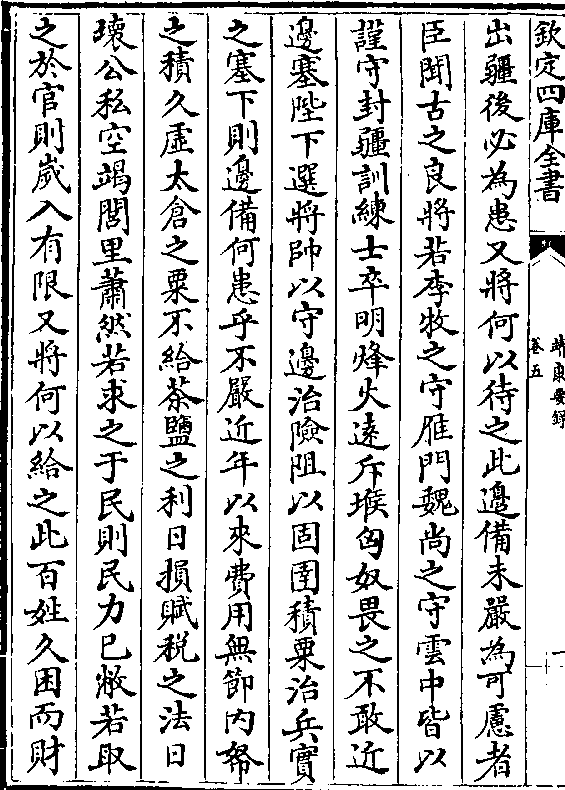 欽定四庫全書
靖康要録
卷五
一
出疆後必為患又將何以待之此邊備未嚴為可慮者
臣聞古之良將若李牧之守雁門魏尚之守雲中皆以
謹守封疆訓練士卒明烽火遠斥堠匈奴畏之不敢近
邊塞陛下選將帥以守邊治險阻以固圉積粟治兵實
之塞下則邊備何患乎不嚴近年以來費用無節内帑
之積久虚太倉之粟不給茶鹽之利日損賦税之法日
壞公私空竭閭里蕭然若求之于民則民力已敝若取
之於官則歲入有限又將何以給之此百姓久困而財